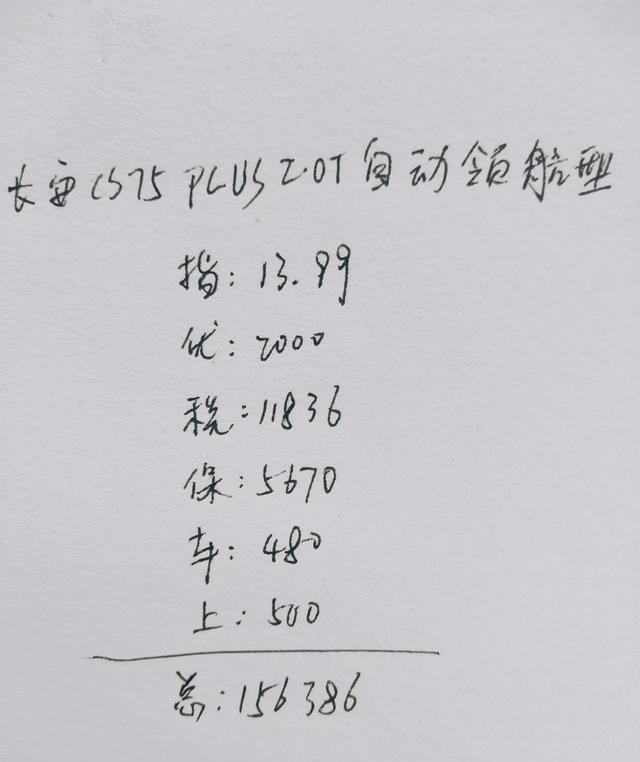 长安CS75 PLUS 2.0T自动领航型
指:13.99
优:2000
税:11836
保:5670
车:480
上:500
总:156386